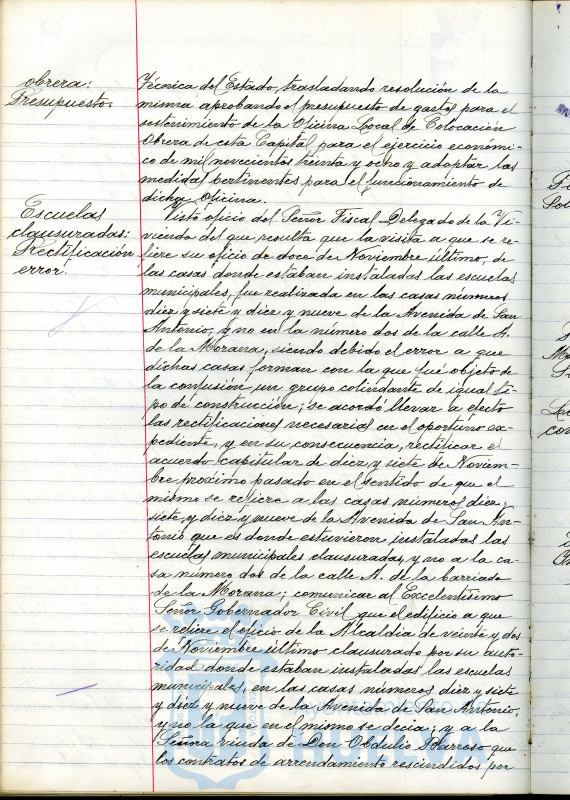 obrera:
Presupuesto.
Técnica del Estado, trasladando resolución de la
misma aprobando el presupuesto de gastos para el
sostenimiento de la Oficina Local de Colocación
Obrera de esta Capital para el ejercicio económi-
co de mil novecientos treinta y ocho y adoptar las
medidas pertinentes para el funcionamiento de
dicha Oficina.
Escuelas
clausuradas:
Rectificación
error.
Visto oficio del Señor Fiscal Delegado de la Vi-
vienda del que resulta que la visita a que se re-
fiere su oficio de doce de Noviembre último, de
las casas donde estaban instaladas las escuelas
municipales, fue realizada en las casas números
diez y siete y diez y nueve de la Avenida de San
Antonio, y no en la número dos de la calle A.
de la Morana, siendo debido el error a que
dichas casas forman con la que fué objeto de
la confusión un grupo colindante de igual ti-
po de construcción; se acordó llevar a efecto
las rectificaciones necesarias en el oportuno ex-
pediente, y en su consecuencia, rectificar el
acuerdo capitular de diez y siete de Noviem-
bre próximo pasado en el sentido de que el
mismo se refiere a las casas números diez y
siete y diez y nueve de la Avenida de San An-
tonio que es donde estuvieron instaladas las
escuelas municipales clausuradas, y no a la ca-
sa número dos de la calle A. de la barriada
de la Morana; comunicar al Excelentísimo
Señor Gobernador Civil que el edificio a que
se refiere el oficio de la Alcaldia de veinte y dos
de Noviembre último clausurado por su auto-
ridad donde estaban instaladas las escuelas
municipales, en las casas números diez y siete
y diez y nueve de la Avenida de San Antonio,
y no la que en el mismo se decia; y a la
Señora viuda de Don Obdulio Barroso que
los contratos de arrendamiento rescindidos por